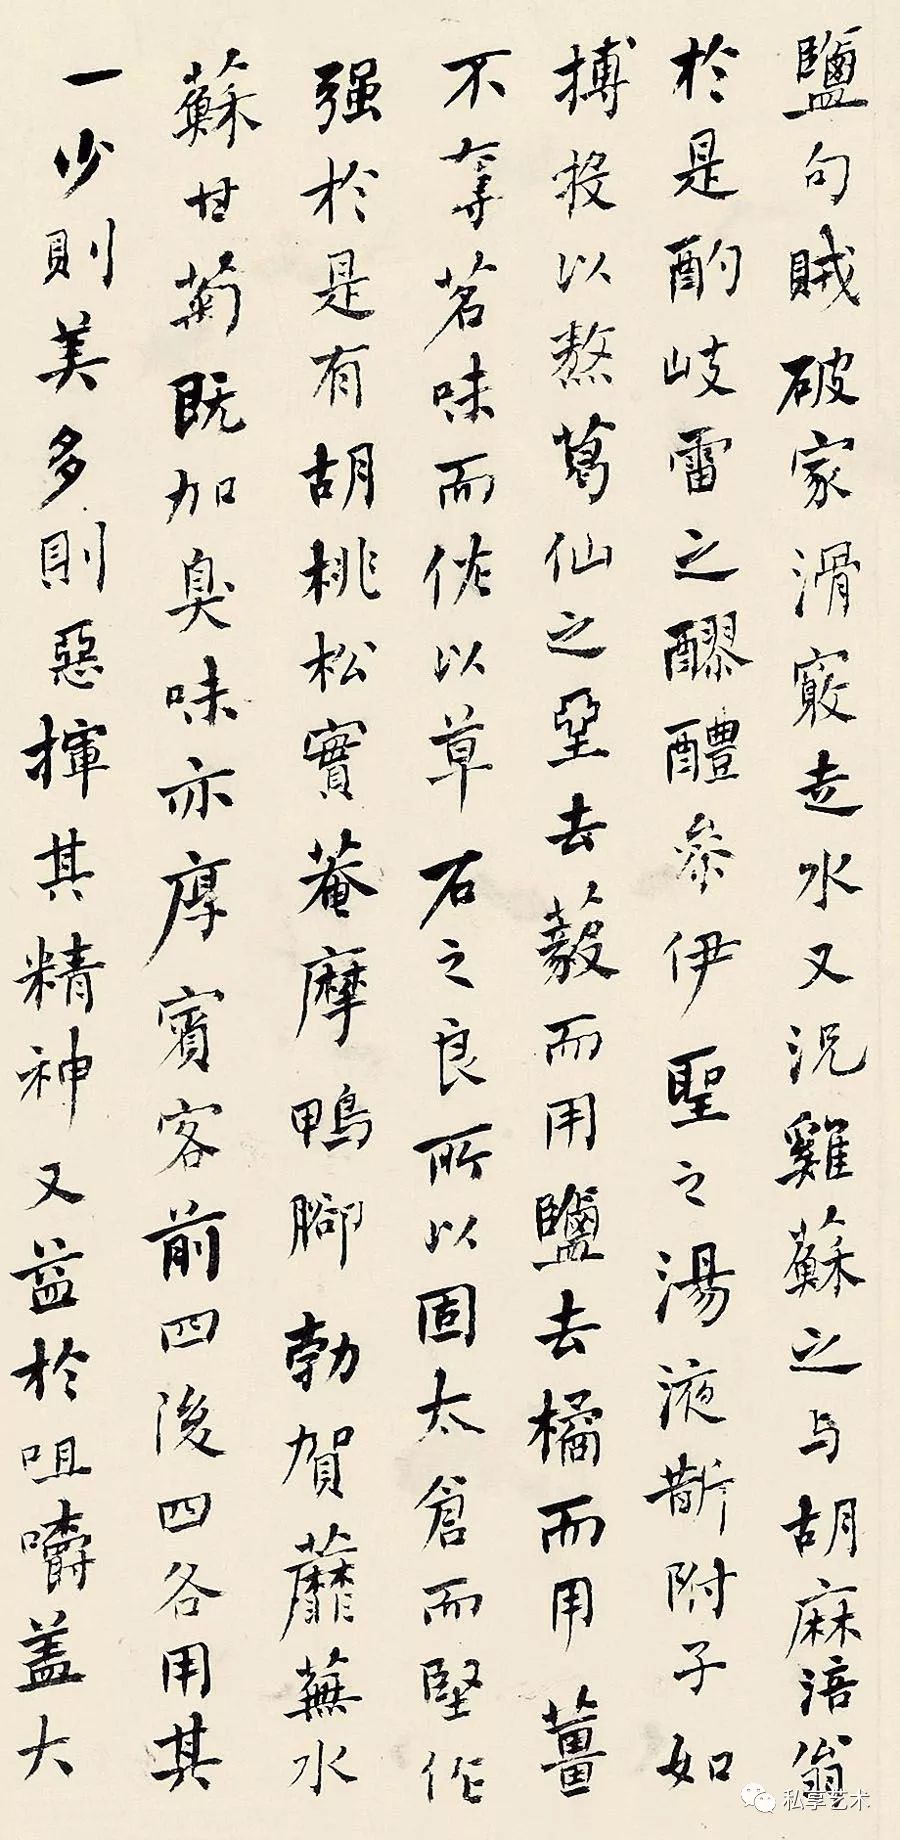 鹽勾賊破家滑竅走水又況雞蘇之与胡麻涪翁
於是酌岐雷之醪醴參伊聖之湯液斮附子如
搏投以熬葛仙之堊去藙而用鹽去橘而用薑
不奪茗味而佐以草石之良所以固太倉而堅作
强於是有胡桃松實菴摩鴨腳勃賀蘼蕪水
蘇甘菊既加臭味亦厚賓客前四後四各用其
一少則美多則惡揮其精神又益於咀嚼盖大
私享艺术